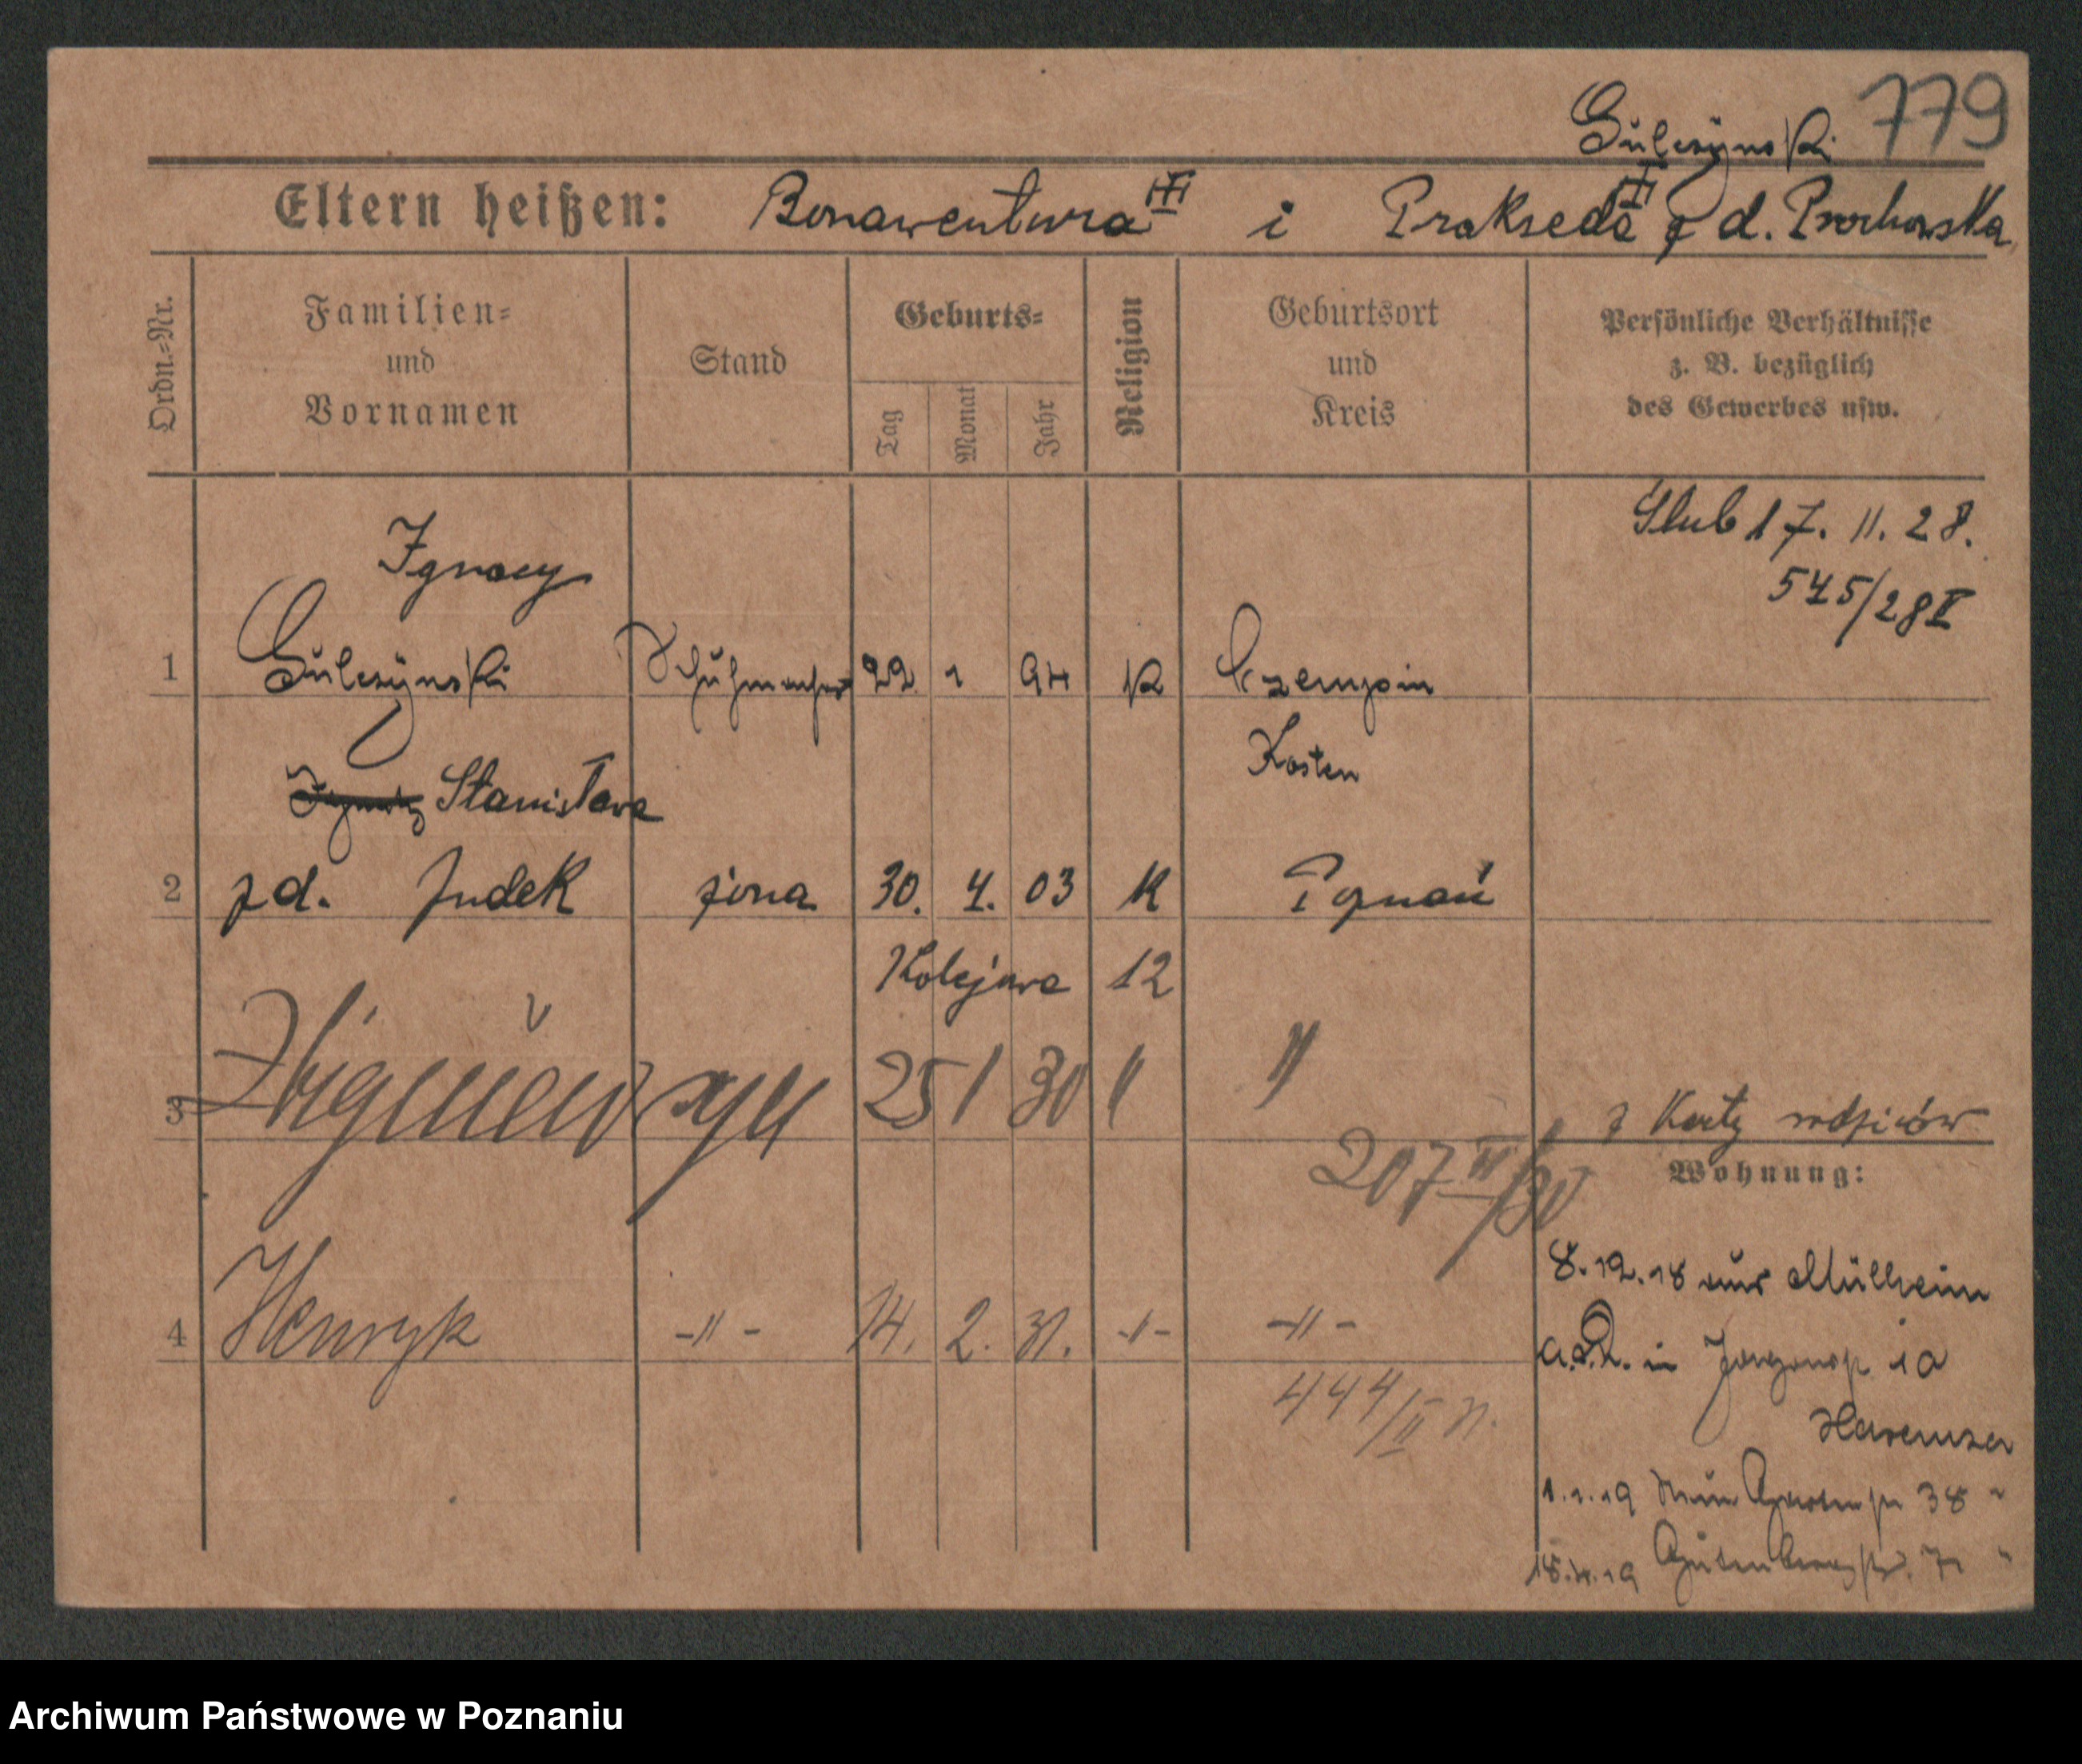 779
Gulczynski
Eltern heißen: Bonawentura i Prakseda z d. Prochowska
Ordn.=Nr.
Familien=
und
Vornamen
Stand
Geburts=
Tag
Monat
Jahr
Religion
Geburtsort
und
Kreis
Persönliche Verhältnisse
z. B. bezüglich
des Gewerbes usw.
Slub 17. 11. 28.
545/28 II
Ignacy
1 Gulczynski Schuhmacher 22 1 94 K Czempin
Kosten
Ignatz Stanisława
2 z d. Judek żona 30. 4. 03 K Poznań
Kolejowa 12
3 Zbigniew syn 25 1 30 " "
z Karty rodziców
207 II/30
Wohnung:
8.12.18 aus Mülheim
4 Henryk -"- 14. 2. 31. -"- -"-
a.d.R. in 10
444/II 31.
1.1.19 38 "
15.4.19 Gutenbergstr. "
Archiwum Państwowe w Poznaniu